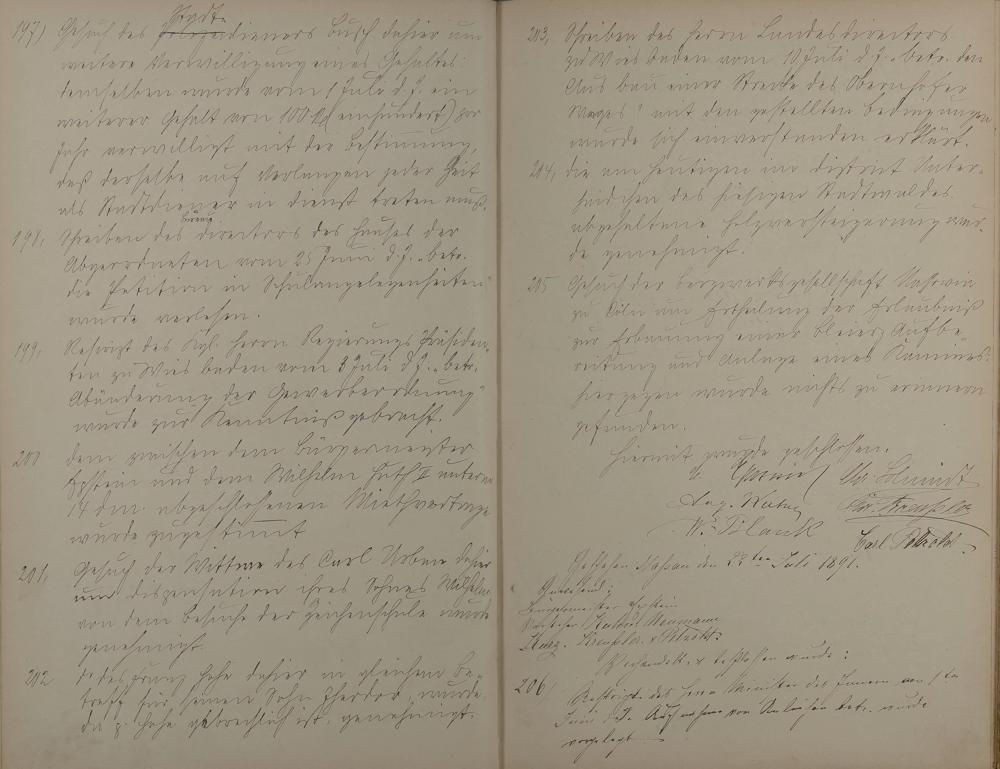 197) Gesuch des Stadtdieners Busch dahier um
weitere Verwilligung eines Gehaltes:
demselben wurde vom 1 Juli d. J. ein
weiterer Gehalt von 100 M (einhundert) per
Jahr verwilligt mit der Bestimmung,
daß derselbe auf Verlangen jeder Zeit
als Stadtdiener in dienst treten muß.
198, Schreiben des Büreau directors des Hauses der
Abgeordneten vom 25 Juni d. J., betr.
die Petition in Schulangelegenheiten"
wurde verlesen.
199, Rescript des Kgl. Herrn Regierungs Präsiden-
ten zu Wiesbaden vom 3 Juli d J., betr.
Abänderung der Gewerbeordnung"
wurde zur Kenntniß gebracht.
200 dem zwischen dem Bürgermeister
Epstein und dem Wilhelm Huth II unterm
14 d m. abgeschlossenen Miethvertrage
wurde zugestimmt
201, Gesuch der Wittwe des Carl Urban dahier
um dispensation ihres Sohnes Wilhelm
von dem Besuche der Zeichenschule wurde
genehmigt.
202 do des Franz Hehe dahier in gleichem Be-
treff für seinen Sohn Theodor, wurde,
da p. Hehe gebrechlich ist, genehmigt.
203, Schreiben des Herrn Landesdirectors
zu Wiesbaden vom 10 Juli d J., betr. den
Ausbau einer Strecke des Obernhofer
Weges" mit den gestellten Bedingungen
wurde sich einverstanden erklärt.
204, die am heutigen im district Unter-
des hiesigen Stadtwaldes
abgehaltene Holzversteigerung wur-
de genehmigt.
205 Gesuch der Bergwerksgesellschaft
zu Cöln um Ertheilung der Erlaubniß
zur Erbauung einer Bleierz Aufbe-
reitung und Anlage eines Kamines:
hiergegen wurde nichts zu erinnern
gefunden.
Hiermit wurde geschlossen.
Chr. Schmidt
Aug. Kurtz Chr. Kreußler
W. Blank Carl Petzold
Geschehen Nassau den 22ten Juli 1891.
Anwesend:
Bürgermeister Epstein
Vorsteher Neumann
Kurz. Kreußler. & Petzold.
Verhandelt & beschlossen wurde:
206) Rescript des Herrn Minister des Innern vom 1ten
Juni d. J. Aufnahme von Anleihen betr. wurde
vorgelegt.